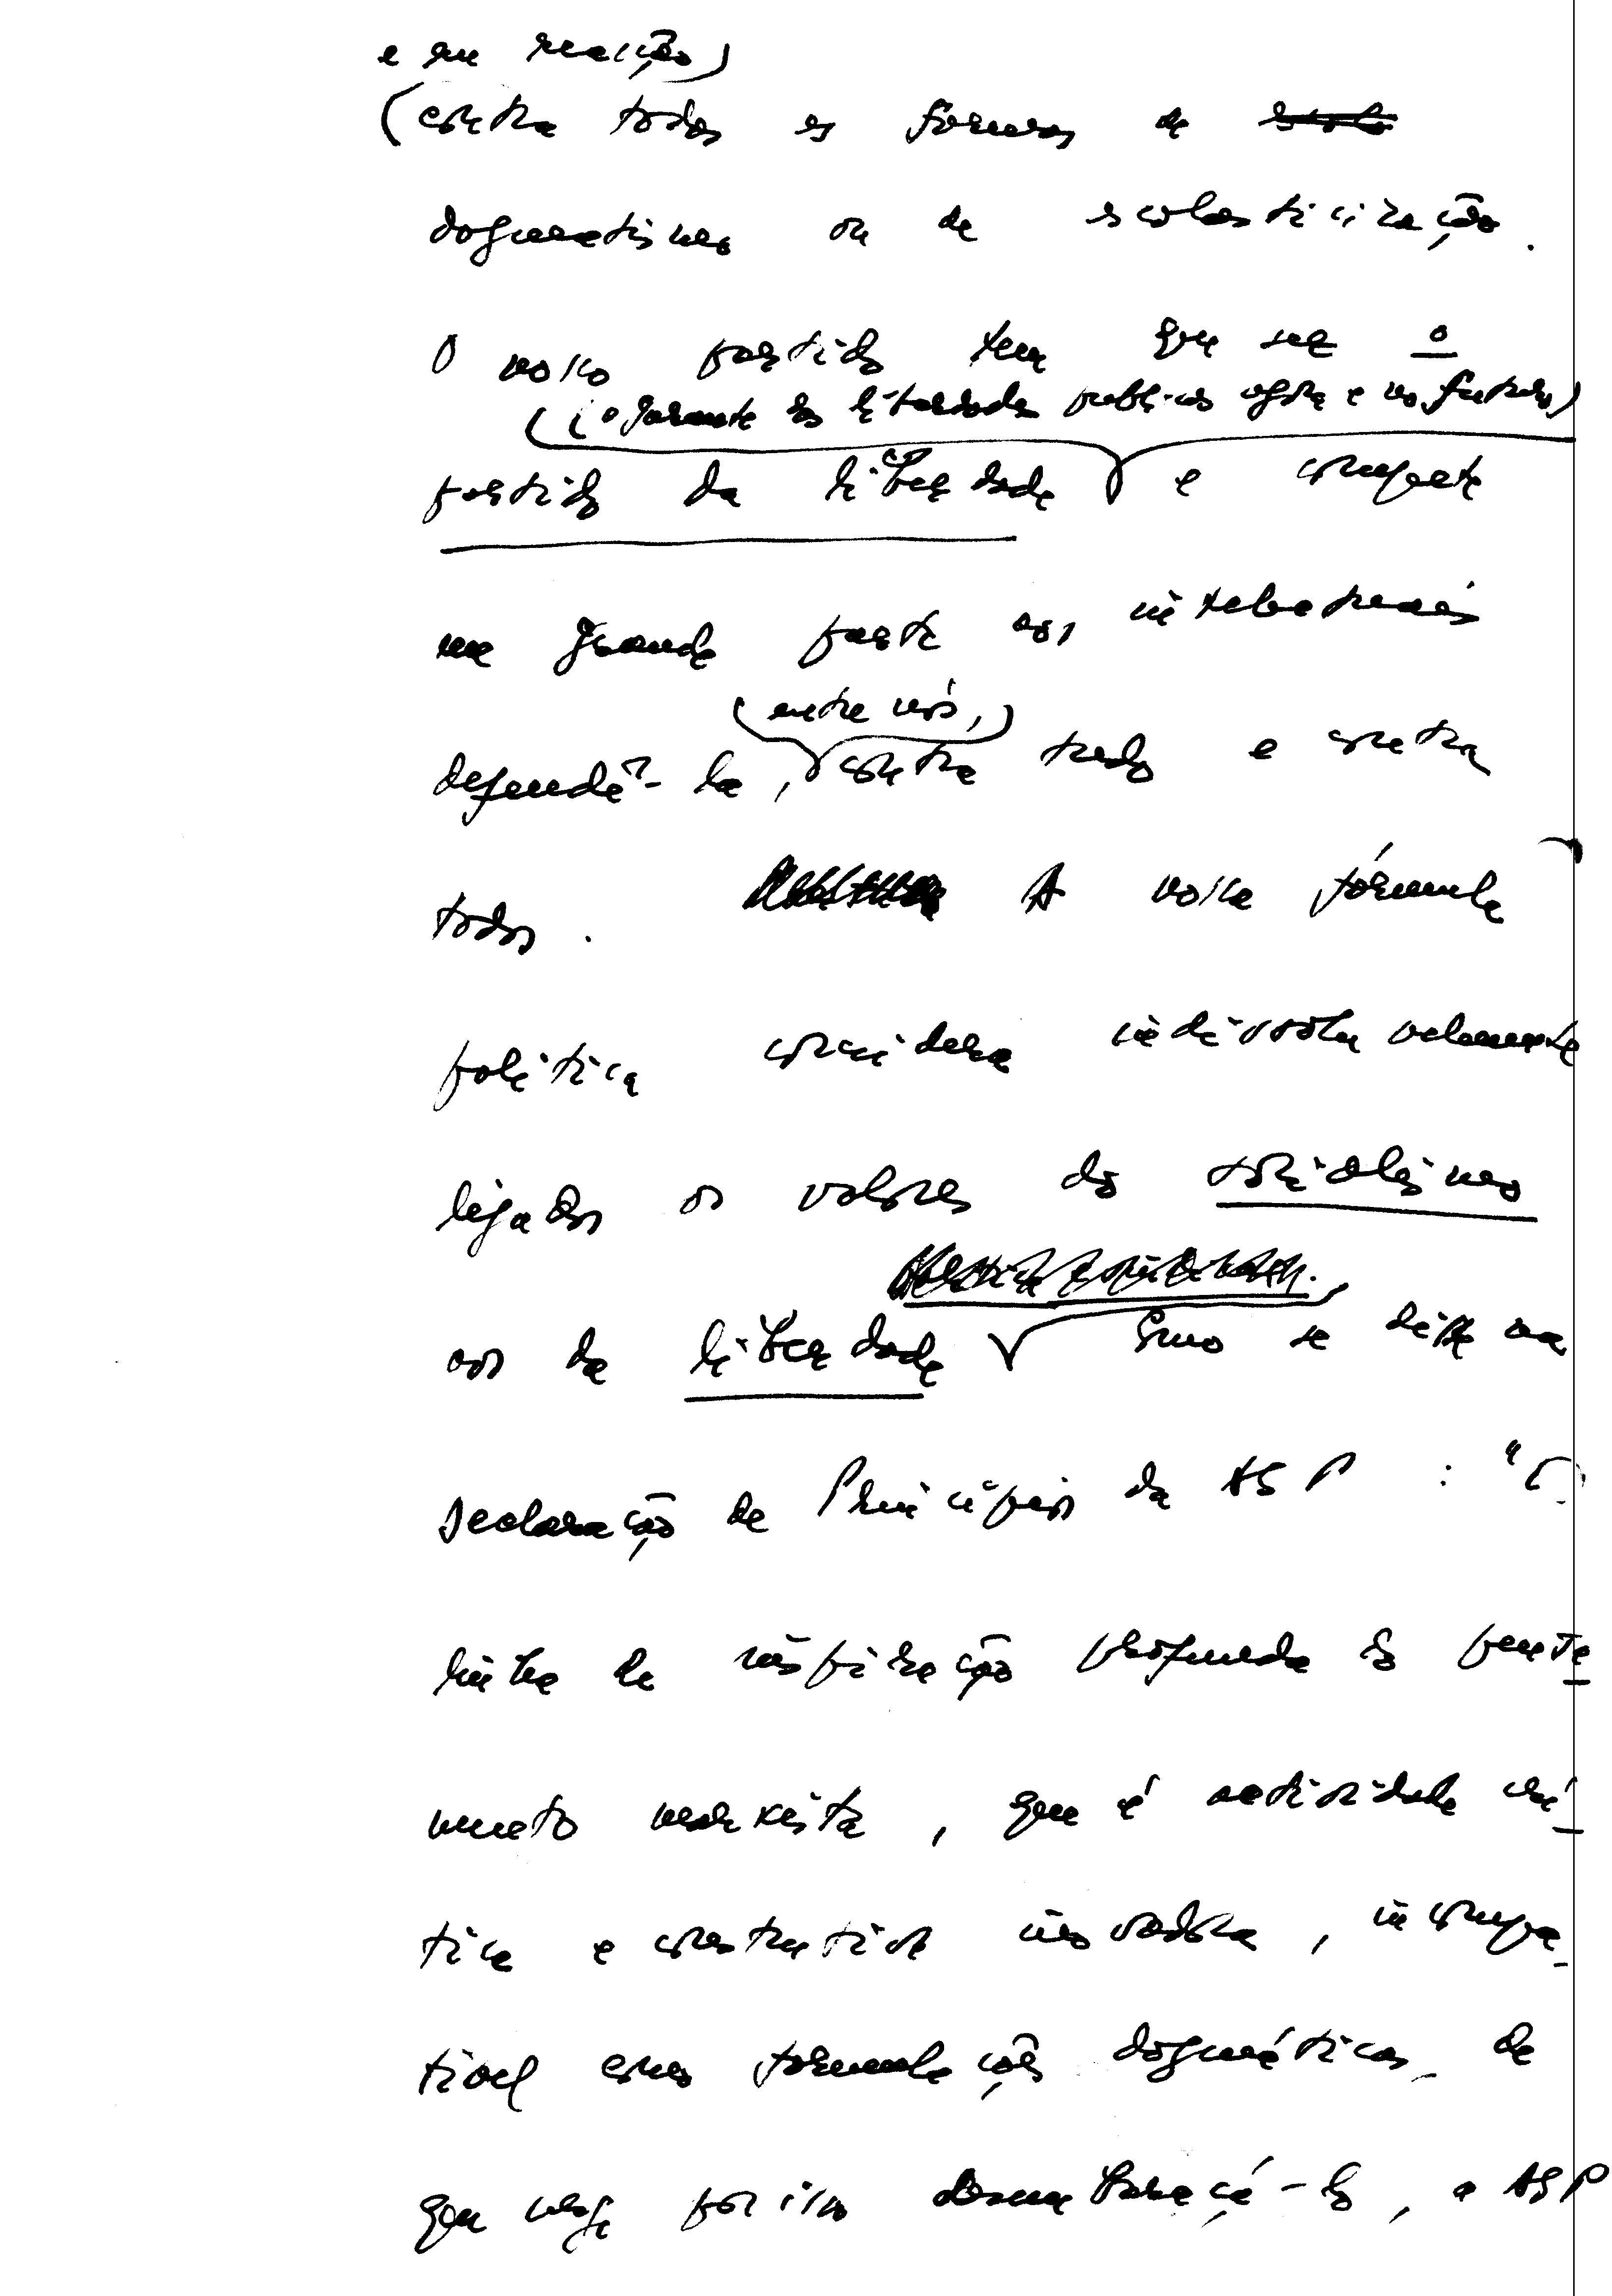 e em reacção)
(contra todas as formas de
dogmatismo ou de escolasticização.
O nosso partido tem que ser o
(o garante das liberdades públicas agora e no futuro)
partido da liberdade e compete
em grande parte aos intelectuais
(entre nós,)
defendê-la, contra tudo e contra
todos. A nossa fórmula
política considera indissoluvelmente
ligados os valores do socialismo
aos da liberdade Como se disse na
Declaração de Princípios da ASP : "
linha de inspiração profunda do pensa-
mento marxista, que é actividade crí-
tica e construtiva inovadora, incompa-
tível com formulações dogmáticas, de
que hoje por isso desembaraçá-lo, a ASP